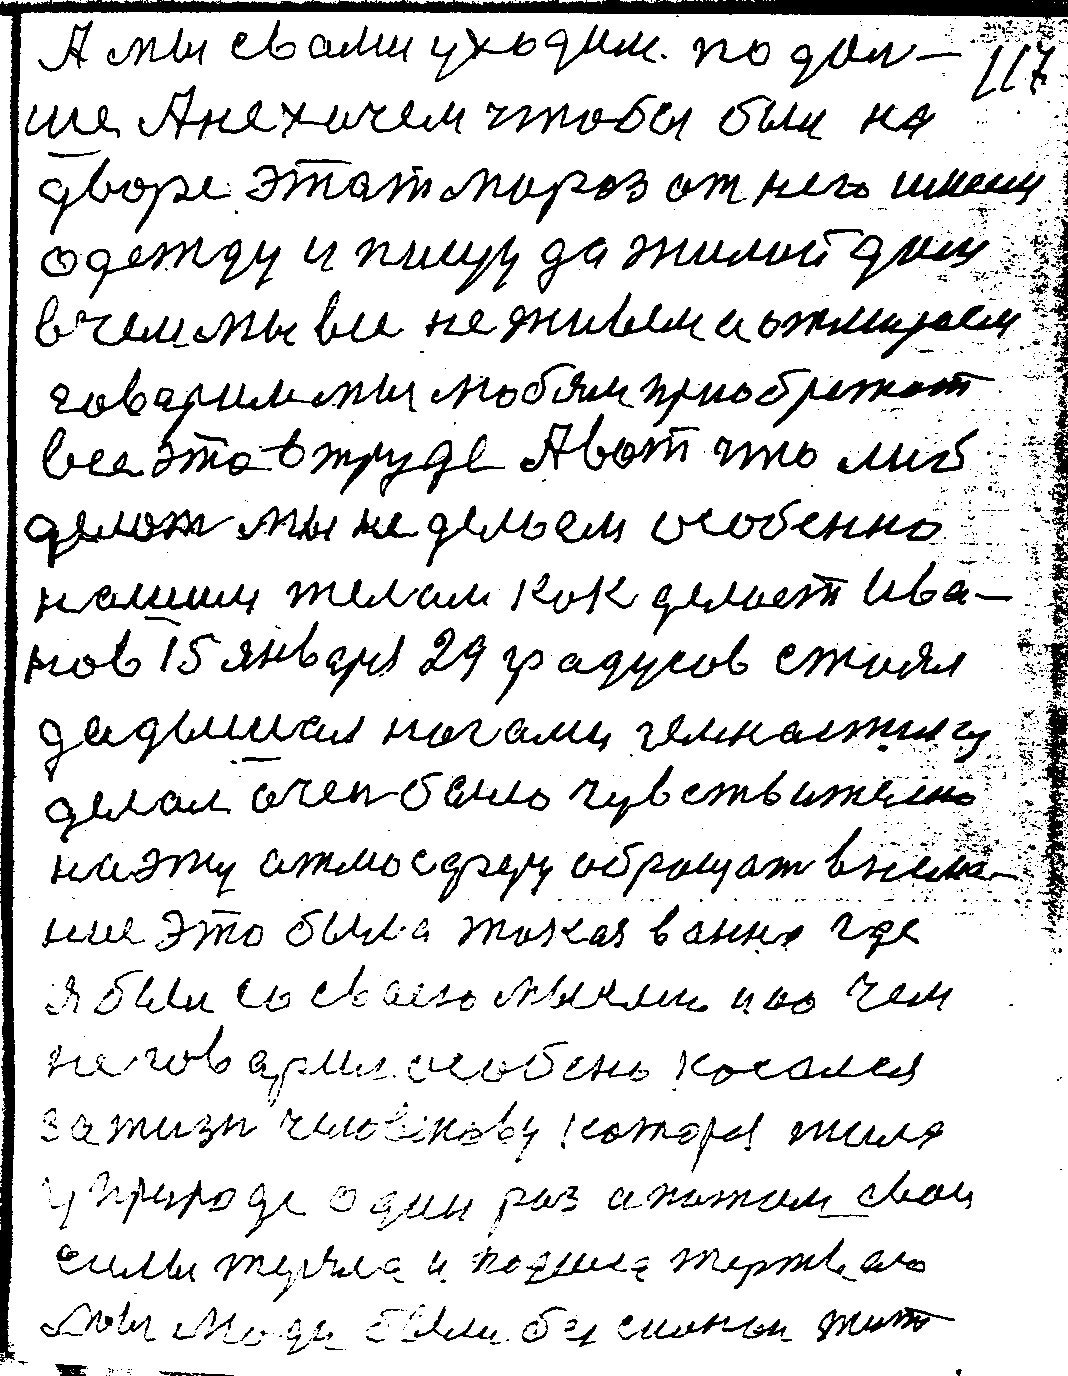 А мы свами уходим. по даль- 117
ше А не хочем чтобы был на
дворе этат мороз от него имеем
одежду и пищу да жилой дом
в чем мы все не живем а отмираем
говарим мы любям приобретат
все это в труде А вот что либ
делат мы не делаем особенно
нашим телам как делает Ива-
нов 15 января 29 градусов стоял
да дышал ногами гемнастику
делал очен было чувствително
на эту атмосферу обращат внима-
ние это была такая ванна где
я был со сваею мыслию и о чем
не говарил особено косался
за жизн человекову котора жила
у природе один раз а потом свои
силы теряла и подала жертваю
мы люди были безсилны жит